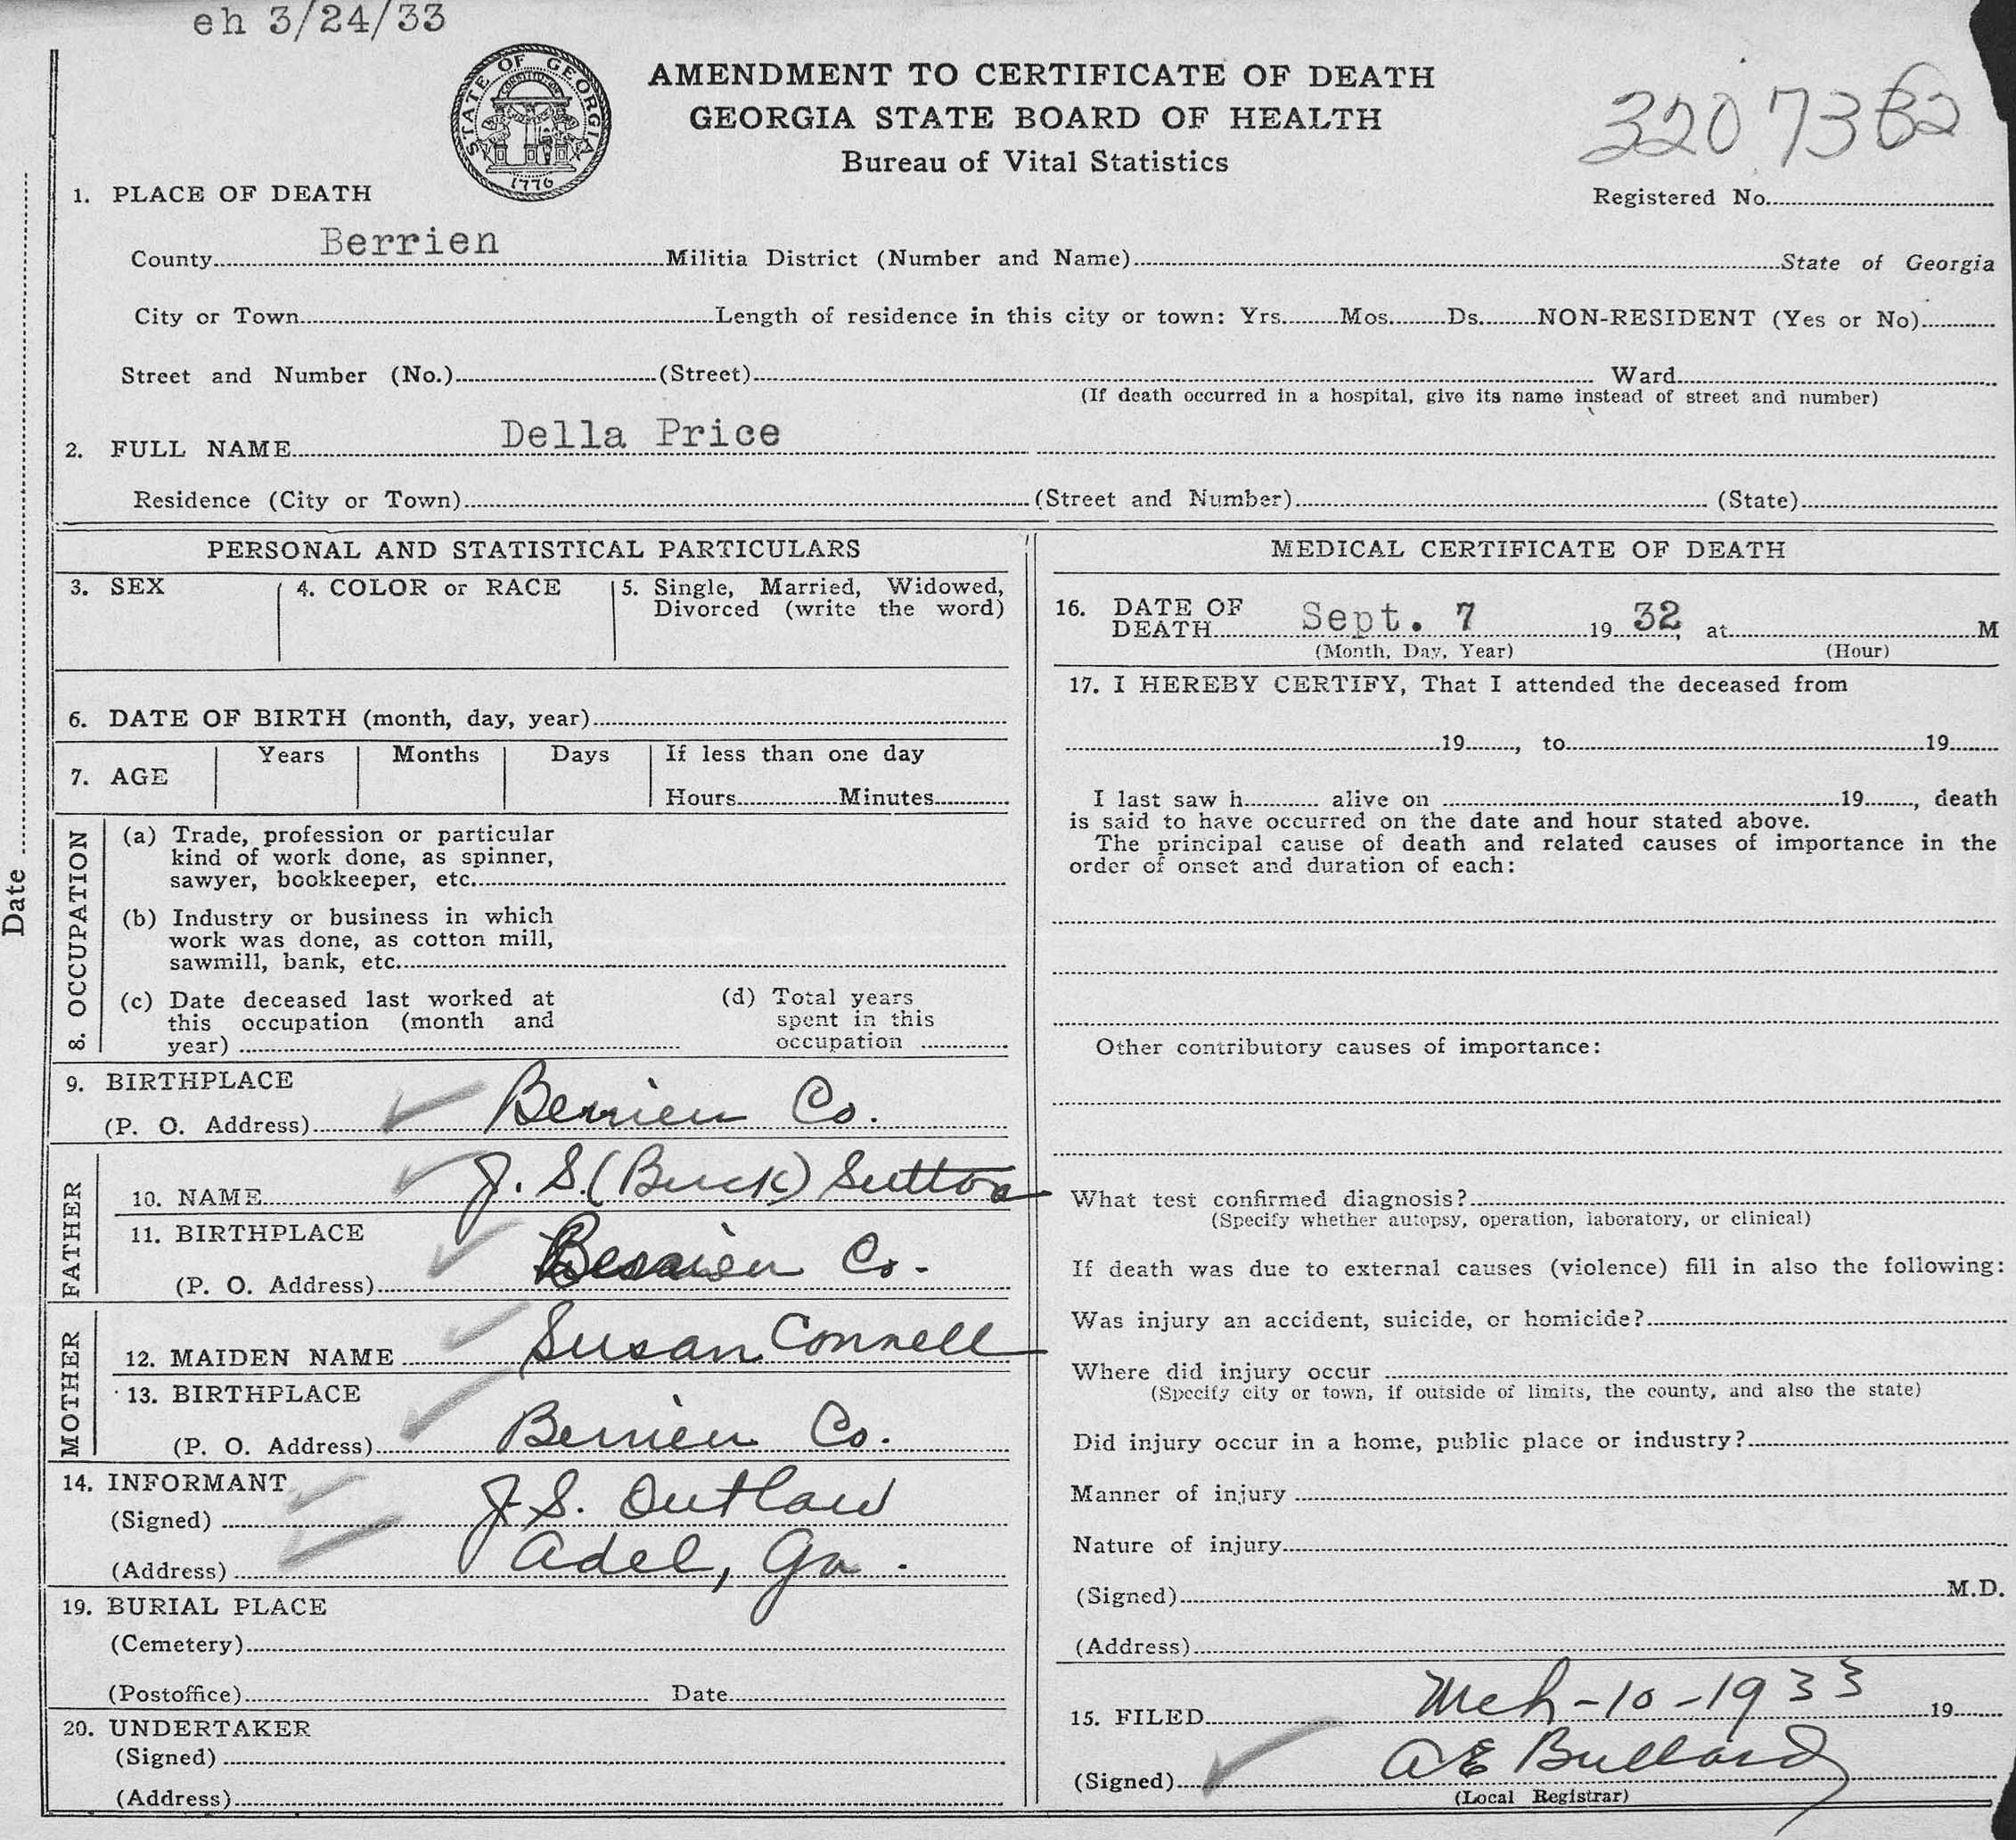 eh 3/24/33
STATE OF GEORGIA
1776
AMENDMENT TO CERTIFICATE OF DEATH
GEORGIA STATE BOARD OF HEALTH
Bureau of Vital Statistics
3207382
Registered No.
1. PLACE OF DEATH
County Berrien Militia District (Number and Name) State of Georgia
City or Town Length of residence in this city or town: Yrs. Mos. Ds. NON-RESIDENT (Yes or No)
Street and Number (No.) (Street) Ward
(If death occurred in a hospital, give its name instead of street and number)
2. FULL NAME Della Price
Residence (City or Town) (Street and Number) (State)
Date
PERSONAL AND STATISTICAL PARTICULARS
3. SEX 4. COLOR or RACE 5. Single, Married, Widowed,
Divorced (write the word)
6. DATE OF BIRTH (month, day, year)
7. AGE Years Months Days If less than one day
Hours Minutes
8. OCCUPATION
(a) Trade, profession or particular
kind of work done, as spinner,
sawyer, bookkeeper, etc.
(b) Industry or business in which
work was done, as cotton mill,
sawmill, bank, etc.
(c) Date deceased last worked at
this occupation (month and
year)
(d) Total years
spent in this
occupation
9. BIRTHPLACE
(P. O. Address) Berrien Co.
FATHER
10. NAME J. S. (Buck) Sutton
11. BIRTHPLACE
(P. O. Address) Berrien Co.
MOTHER
12. MAIDEN NAME Susan Connell
13. BIRTHPLACE
(P. O. Address) Berrien Co.
14. INFORMANT
(Signed) J. S. Outlaw
(Address) Adel, Ga.
19. BURIAL PLACE
(Cemetery)
(Postoffice) Date
20. UNDERTAKER
(Signed)
(Address)
MEDICAL CERTIFICATE OF DEATH
16. DATE OF
DEATH Sept. 7 19 32, at M
(Month, Day, Year) (Hour)
17. I HEREBY CERTIFY, That I attended the deceased from
19 , to 19
I last saw h alive on 19 , death
is said to have occurred on the date and hour stated above.
The principal cause of death and related causes of importance in the
order of onset and duration of each:
Other contributory causes of importance:
What test confirmed diagnosis?
(Specify whether autopsy, operation, laboratory, or clinical)
If death was due to external causes (violence) fill in also the following:
Was injury an accident, suicide, or homicide?
Where did injury occur
(Specify city or town, if outside of limits, the county, and also the state)
Did injury occur in a home, public place or industry?
Manner of injury
Nature of injury
(Signed) M.D.
(Address)
15. FILED Mch-10-1933 19
(Signed) A E Bullard
(Local Registrar)